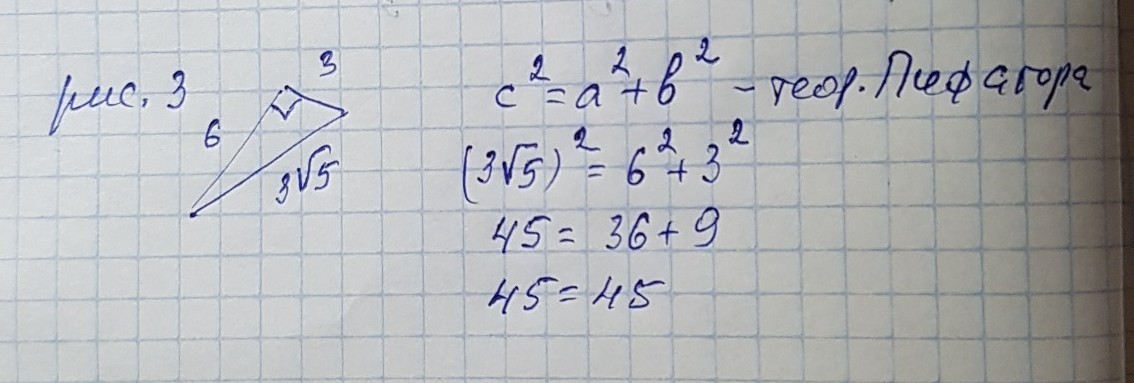 рис. 3
3
6
3√5
c² = a² + b² – теор. Пифагора
(3√5)² = 6² + 3²
45 = 36 + 9
45 = 45